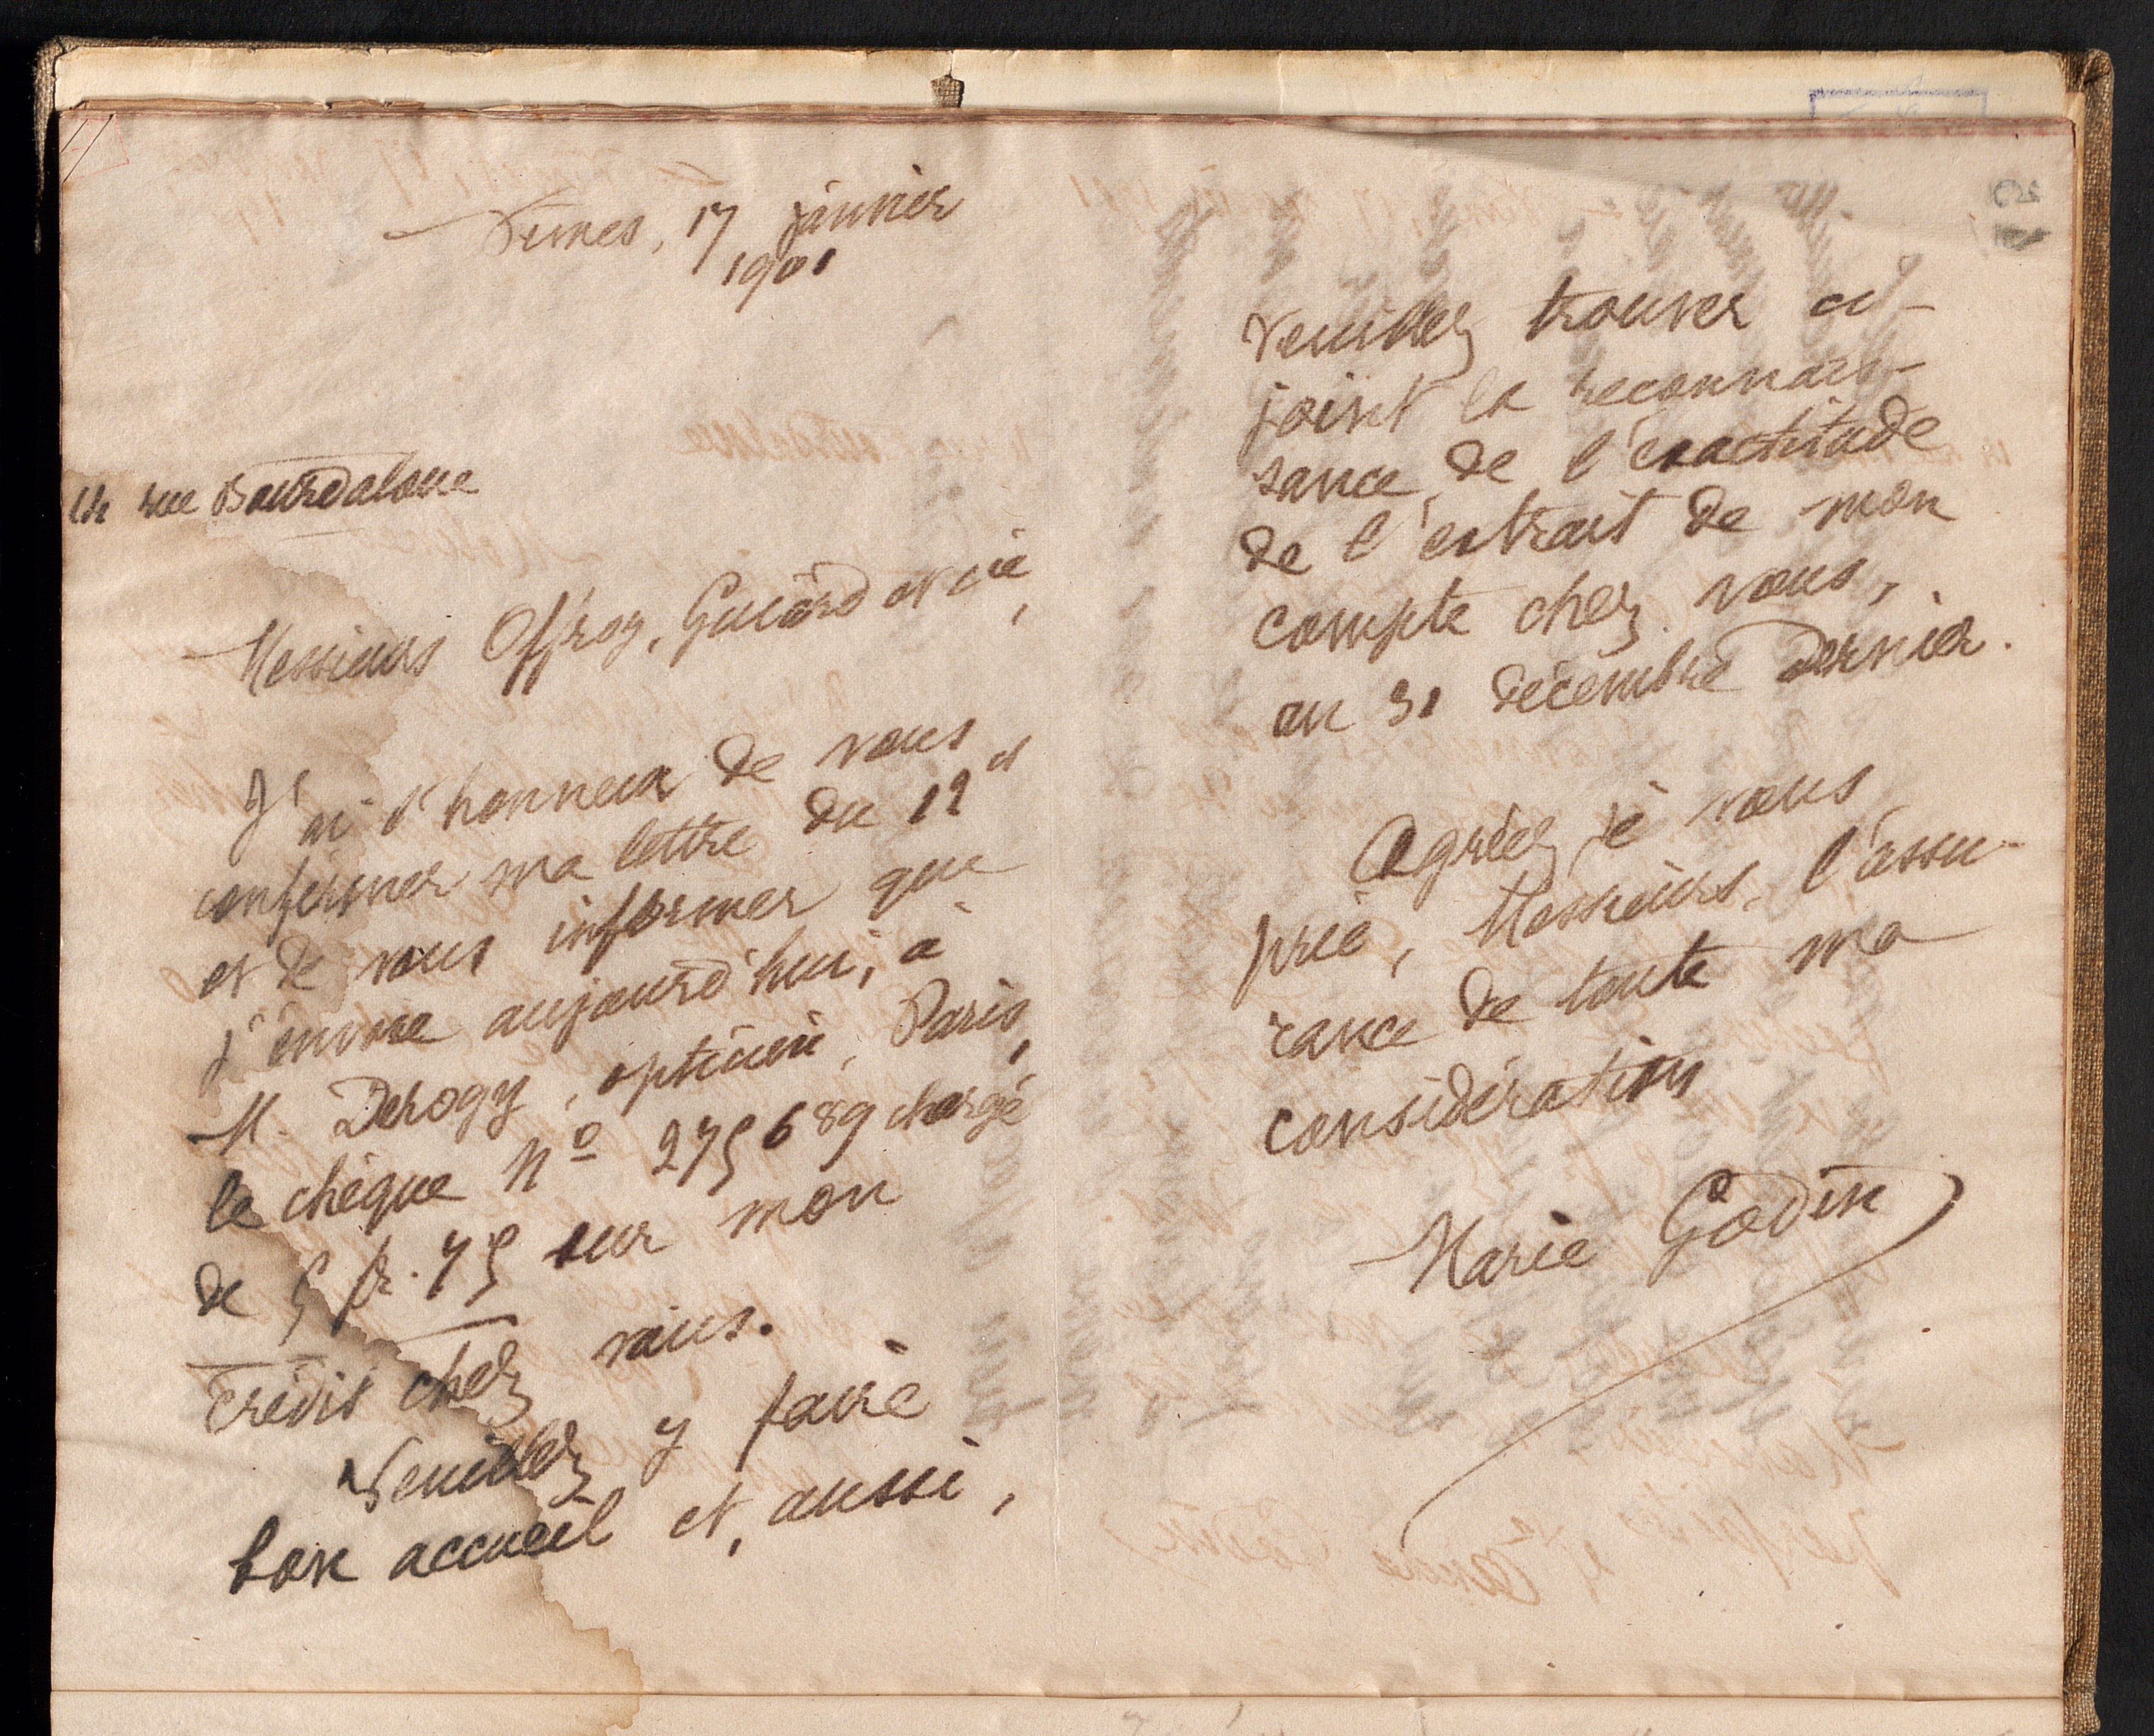 Nimes, 17 janvier
1901
14 rue Bourdaloue
Messieurs Offroy, Guiard et Cie,
J'ai l'honneur de vous
confirmer ma lettre du 12 et
et de vous informer que
j'envoie aujourd'hui, à
M. Derogy, opticien, Paris,
le chèque No 275689 chargé
de 5 fr. 75 sur mon
crédit chez vous.
Veuillez y faire
bon accueil et, aussi,
veuillez trouver ci-
joint la reconnais-
sance de l'exactitude
de l'extrait de mon
compte chez vous,
au 31 décembre dernier.
Agréez je vous
prie, Messieurs, l'assu-
rance de toute ma
considération
Marie Godin